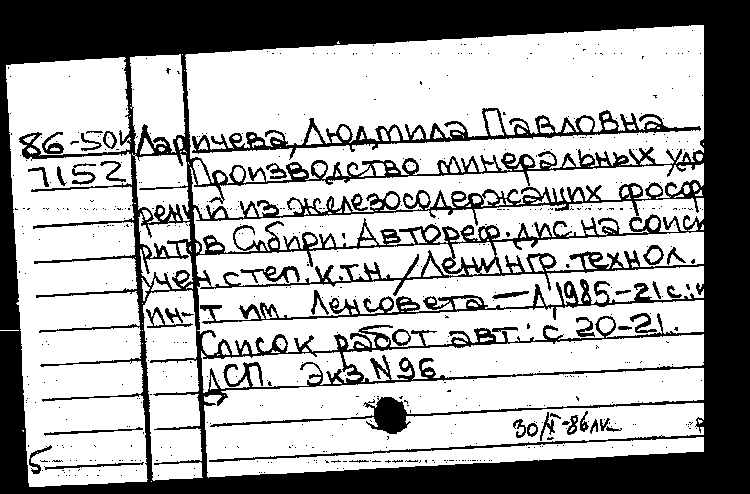 86-50к Ларичева, Людмила Павловна
7152 Производство минеральных удоб
рений из железосодержащих фосфо
ритов Сибири: Автореф. дис. на соиск
учен. степ. к.т.н. / Ленингр. технол.
ин-т им. Ленсовета. - Л 1985. - 21 с.:
Список работ авт.: с 20-21.
ДСП. Экз. N 96.
30/X-86
5